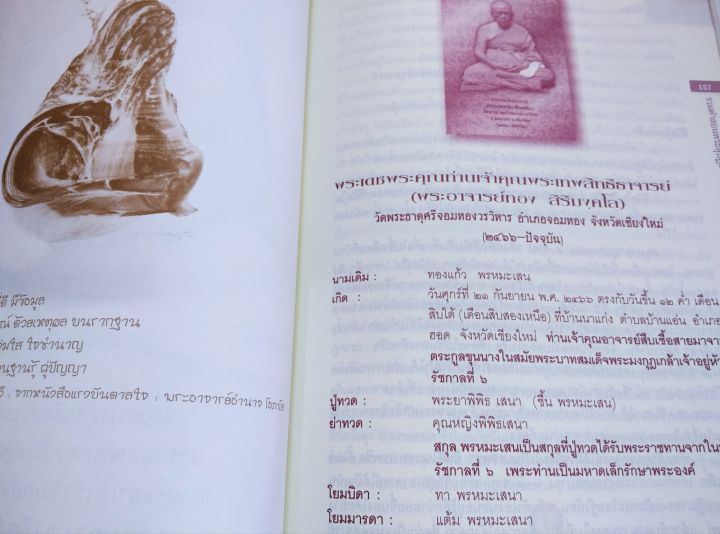 มีข้อมูล
ด้วยเหตุผล บนรากฐาน
ใจชำนาญ
ผู้ปัญญา
: จากหนังสือแรงบันดาลใจ : พระอาจารย์อำนาจ
157
พระเดชพระคุณท่านเจ้าคุณพระเทพสิทธิธาจารย์
(พระอาจารย์ทอง สิริมงฺคโล)
วัดพระธาตุศรีจอมทองวรวิหาร อำเภอจอมทอง จังหวัดเชียงใหม่
(๒๔๖๖-ปัจจุบัน)
นามเดิม : ทองแก้ว พรหมะเสน
เกิด : วันศุกร์ที่ ๒๑ กันยายน พ.ศ. ๒๔๖๖ ตรงกับวันขึ้น ๑๒ ค่ำ เดือน
สิบใต้ (เดือนสิบสองเหนือ) ที่บ้านนาแก่ง ตำบลบ้านแอ่น อำเภอ
ฮอด จังหวัดเชียงใหม่ ท่านเจ้าคุณอาจารย์สืบเชื้อสายมาจาก
ตระกูลขุนนางในสมัยพระบาทสมเด็จพระมงกุฎเกล้าเจ้าอยู่หัว
รัชกาลที่ ๖
ปู่ทวด : พระยาพิพิธ เสนา (ชื้น พรหมะเสน)
ย่าทวด : คุณหญิงพิพิธเสนา
สกุล พรหมะเสนเป็นสกุลที่ปู่ทวดได้รับพระราชทานจากใน
รัชกาลที่ ๖ เพราะท่านเป็นมหาดเล็กรักษาพระองค์
โยมบิดา : ทา พรหมะเสนา
โยมมารดา : แต้ม พรหมะเสนา